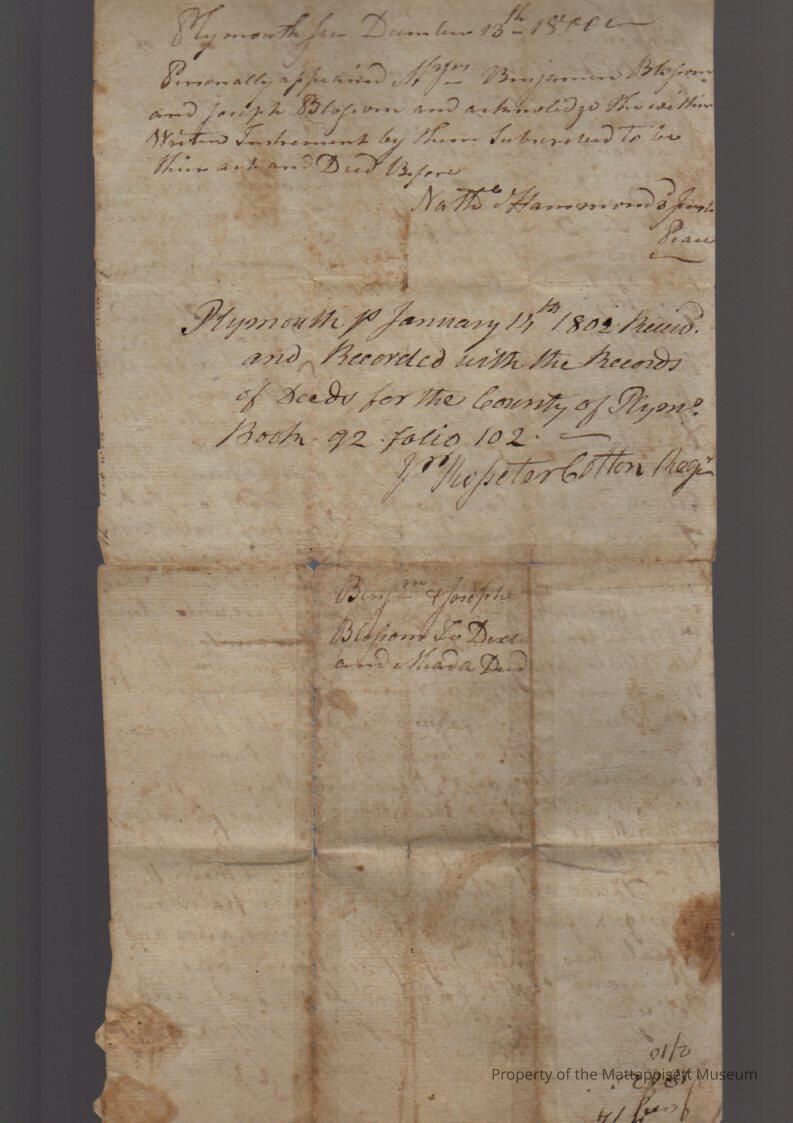 Plymouth ss December 13th
Personally appeared Messrs Benjamin Blossom
and Joseph Blossom and acknolidge the within
Writen Instrement by them Subscribed to be
thier act and Deed Before
Nathl Hammond Just
Peace
Plymouth ss January 14th 1802 Receivd.
and Recorded with the Records
of Deeds for the County of Plymo.
Book 92 folio 102. —
pr Rosseter Cotton Regr
Benjm & Joseph
Blossom To Dexter
and Meada Deed
2/10
1802
Jany 14
Property of the Mattapoisett Museum